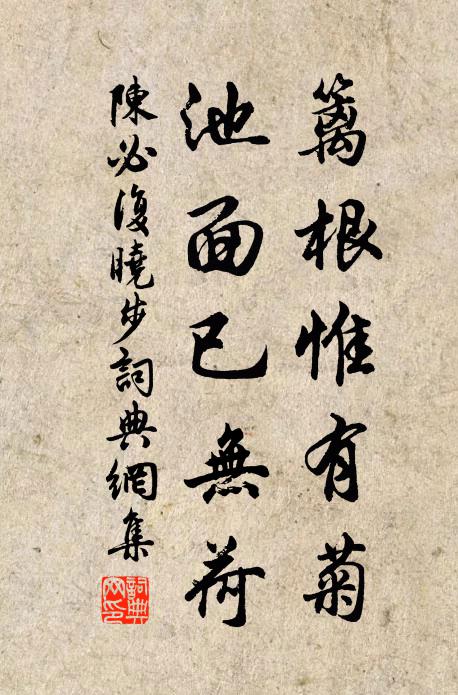 籬根惟有菊
池面已無荷
陳必復曉步詞典網集
詞典网印